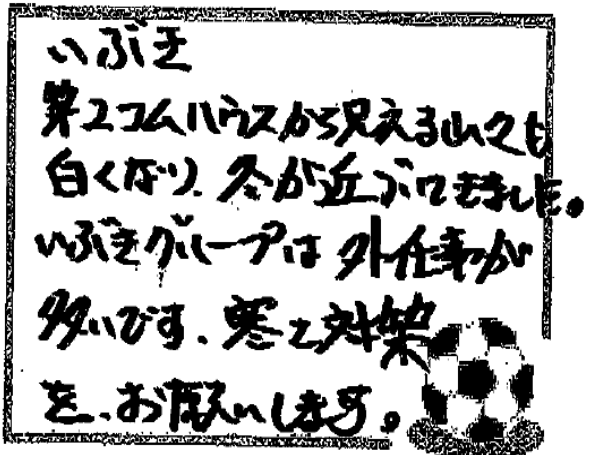 いぶき
第2コムハウスから見える山々も
白くなり、冬が近づいてきました。
いぶきグループは外仕事が
多いです、寒さ対策
を、お願いします。